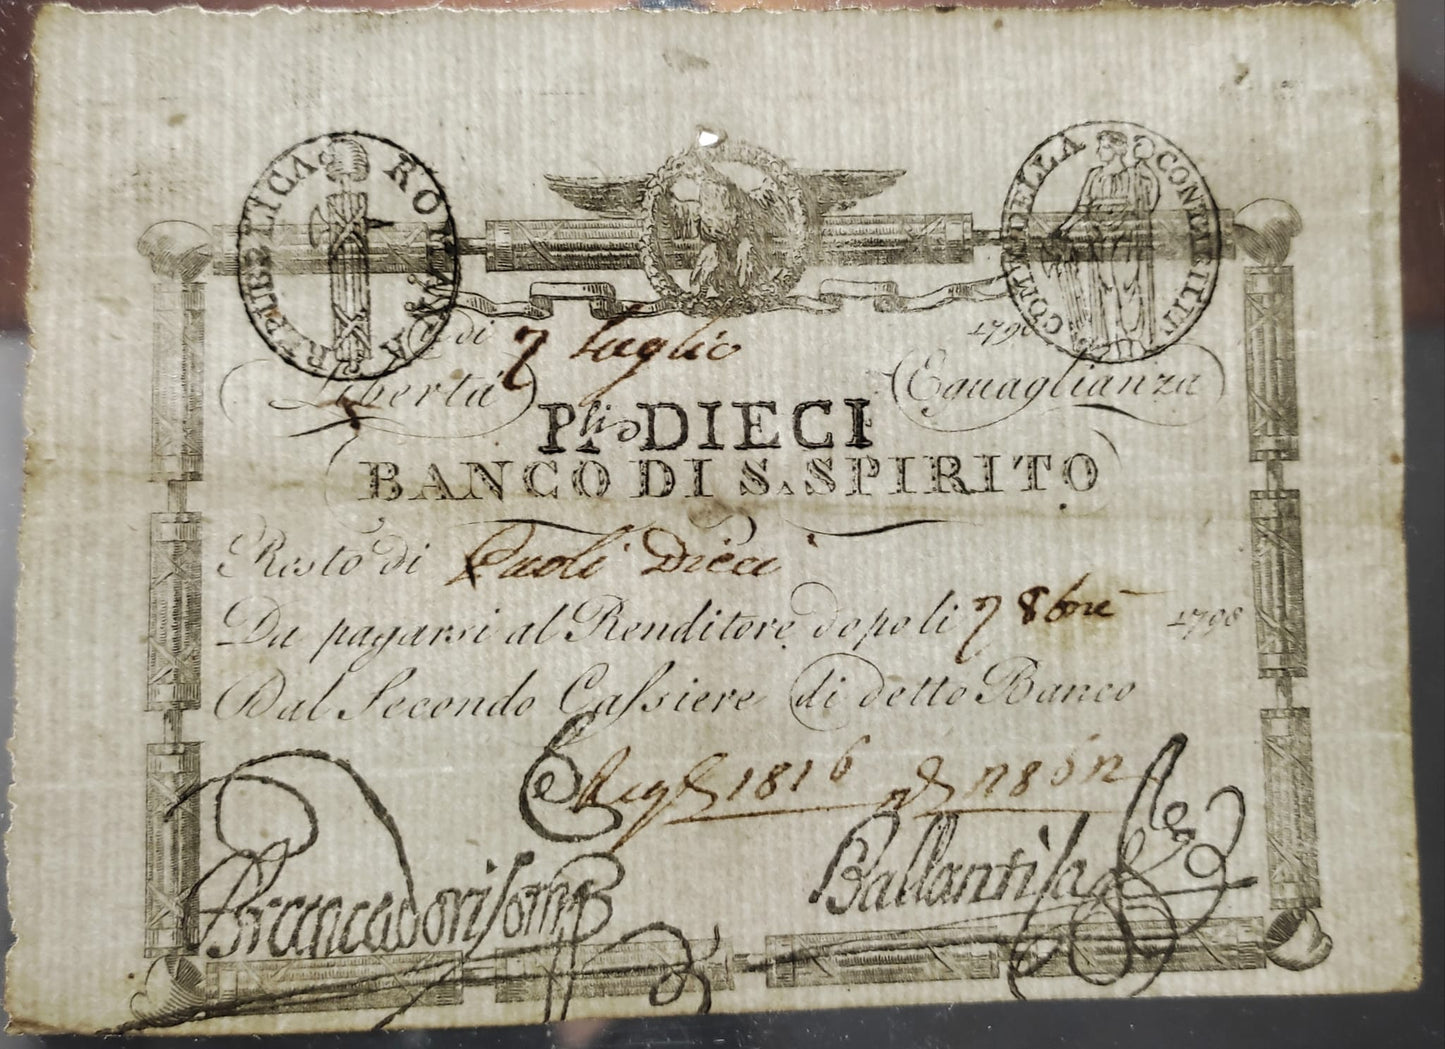 REPUBLICA ROMANA
COMM. DELLA CONTABILITÀ
di 7 luglio 1798
Libertà Eguaglianza
Pli DIECI
BANCO DI S. SPIRITO
Resto di Paoli Dieci
Da pagarsi al Renditore dopo li 7 8bre 1798
Dal Secondo Cassiere di detto Banco
Reg. 1816 n
Brancadori
Ballanti